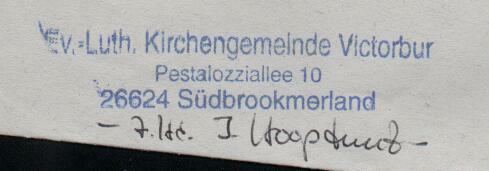 Ev.-Luth. Kirchengemeinde Victorbur
Pestalozziallee 10
26624 Südbrookmerland